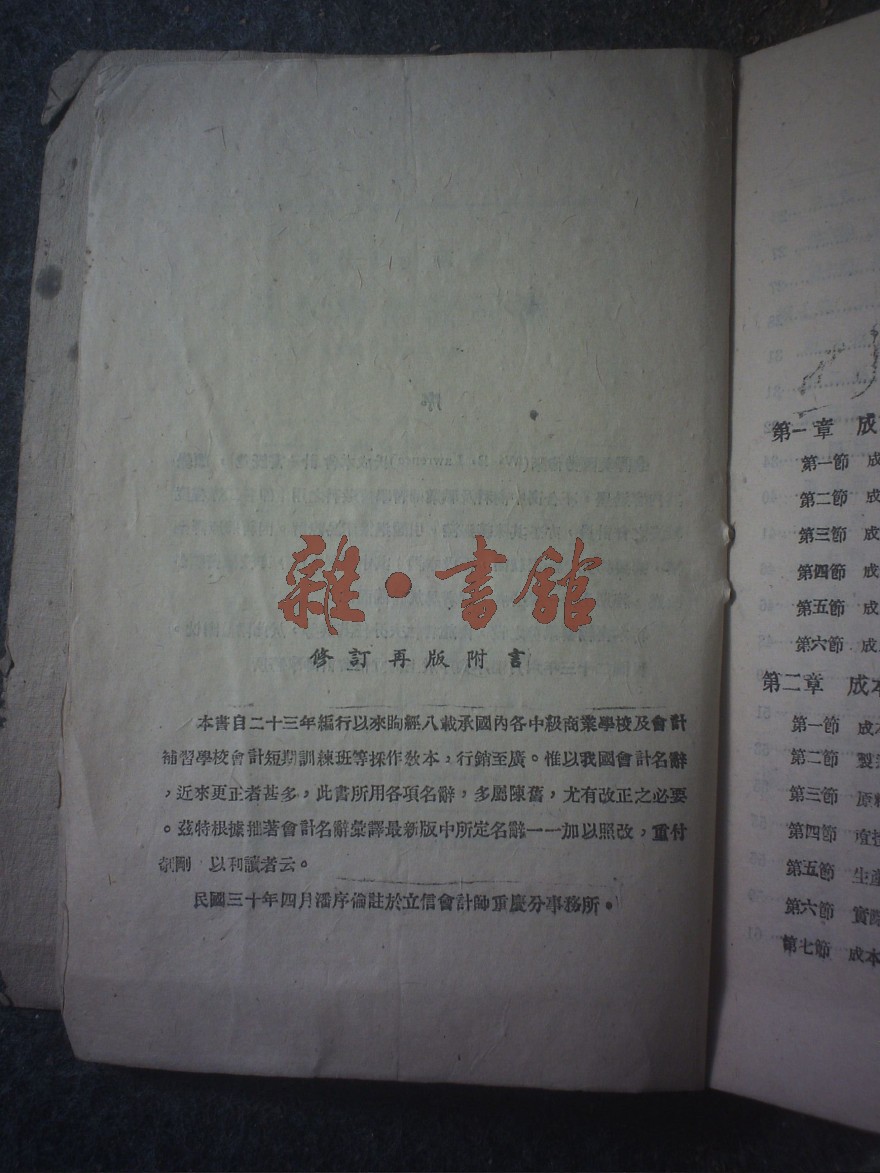 雜·書館
修訂再版附言
本書自二十三年編行以來眴經八載承國內各中級商業學校及會計
補習學校會計短期訓練班等採作敎本，行銷至廣。惟以我國會計名辭
，近來更正者甚多，此書所用各項名辭，多屬陳舊，尤有改正之必要
。茲特根據拙著會計名辭彙譯最新版中所定名辭一一加以照改，重付
剞劂 以利讀者云。
民國三十年四月潘序倫註於立信會計師重慶分事務所。
第一章 成
第一節 成
第二節 成
第三節 成
第四節 成
第五節 成
第六節 成
第二章 成本
第一節 成本
第二節 製
第三節 原料
第四節 直接
第五節 生產
第六節 實際
第七節 成本